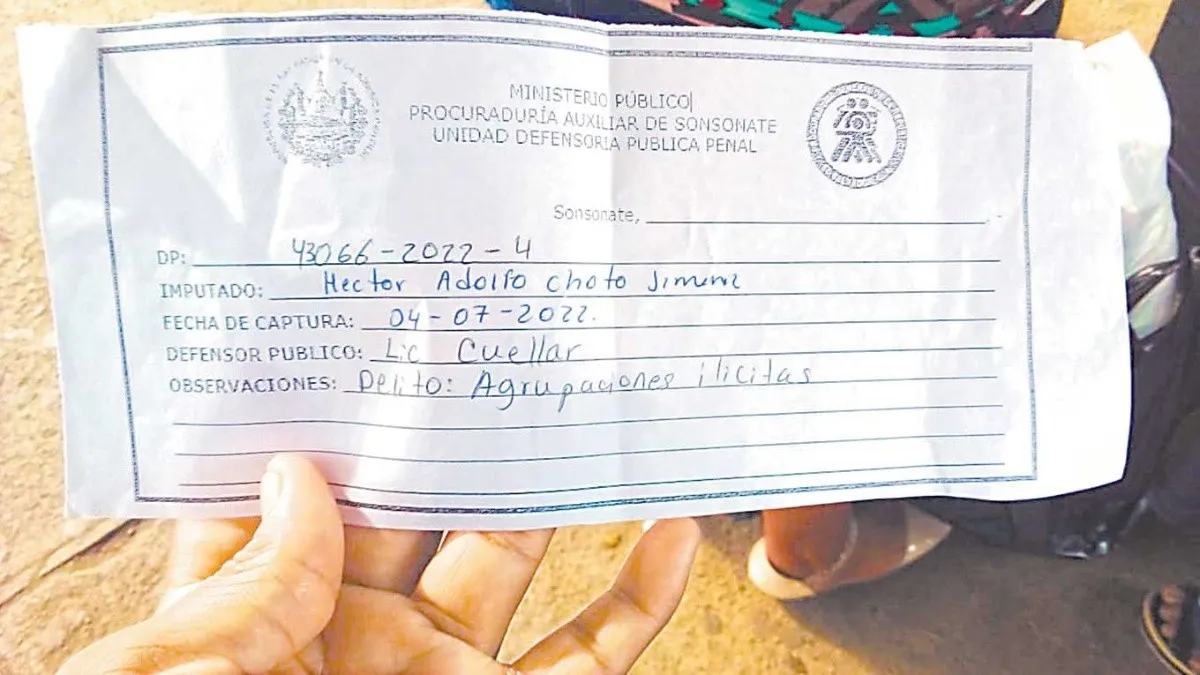 MINISTERIO PÚBLICO
PROCURADURÍA AUXILIAR DE SONSONATE
UNIDAD DEFENSORIA PUBLICA PENAL
Sonsonate,
DP: 43066-2022-4
IMPUTADO: Hector Adolfo choto Jimenz
FECHA DE CAPTURA: 04-07-2022.
DEFENSOR PUBLICO: Lic Cuellar
OBSERVACIONES: Delito: Agrupaciones ilicitas